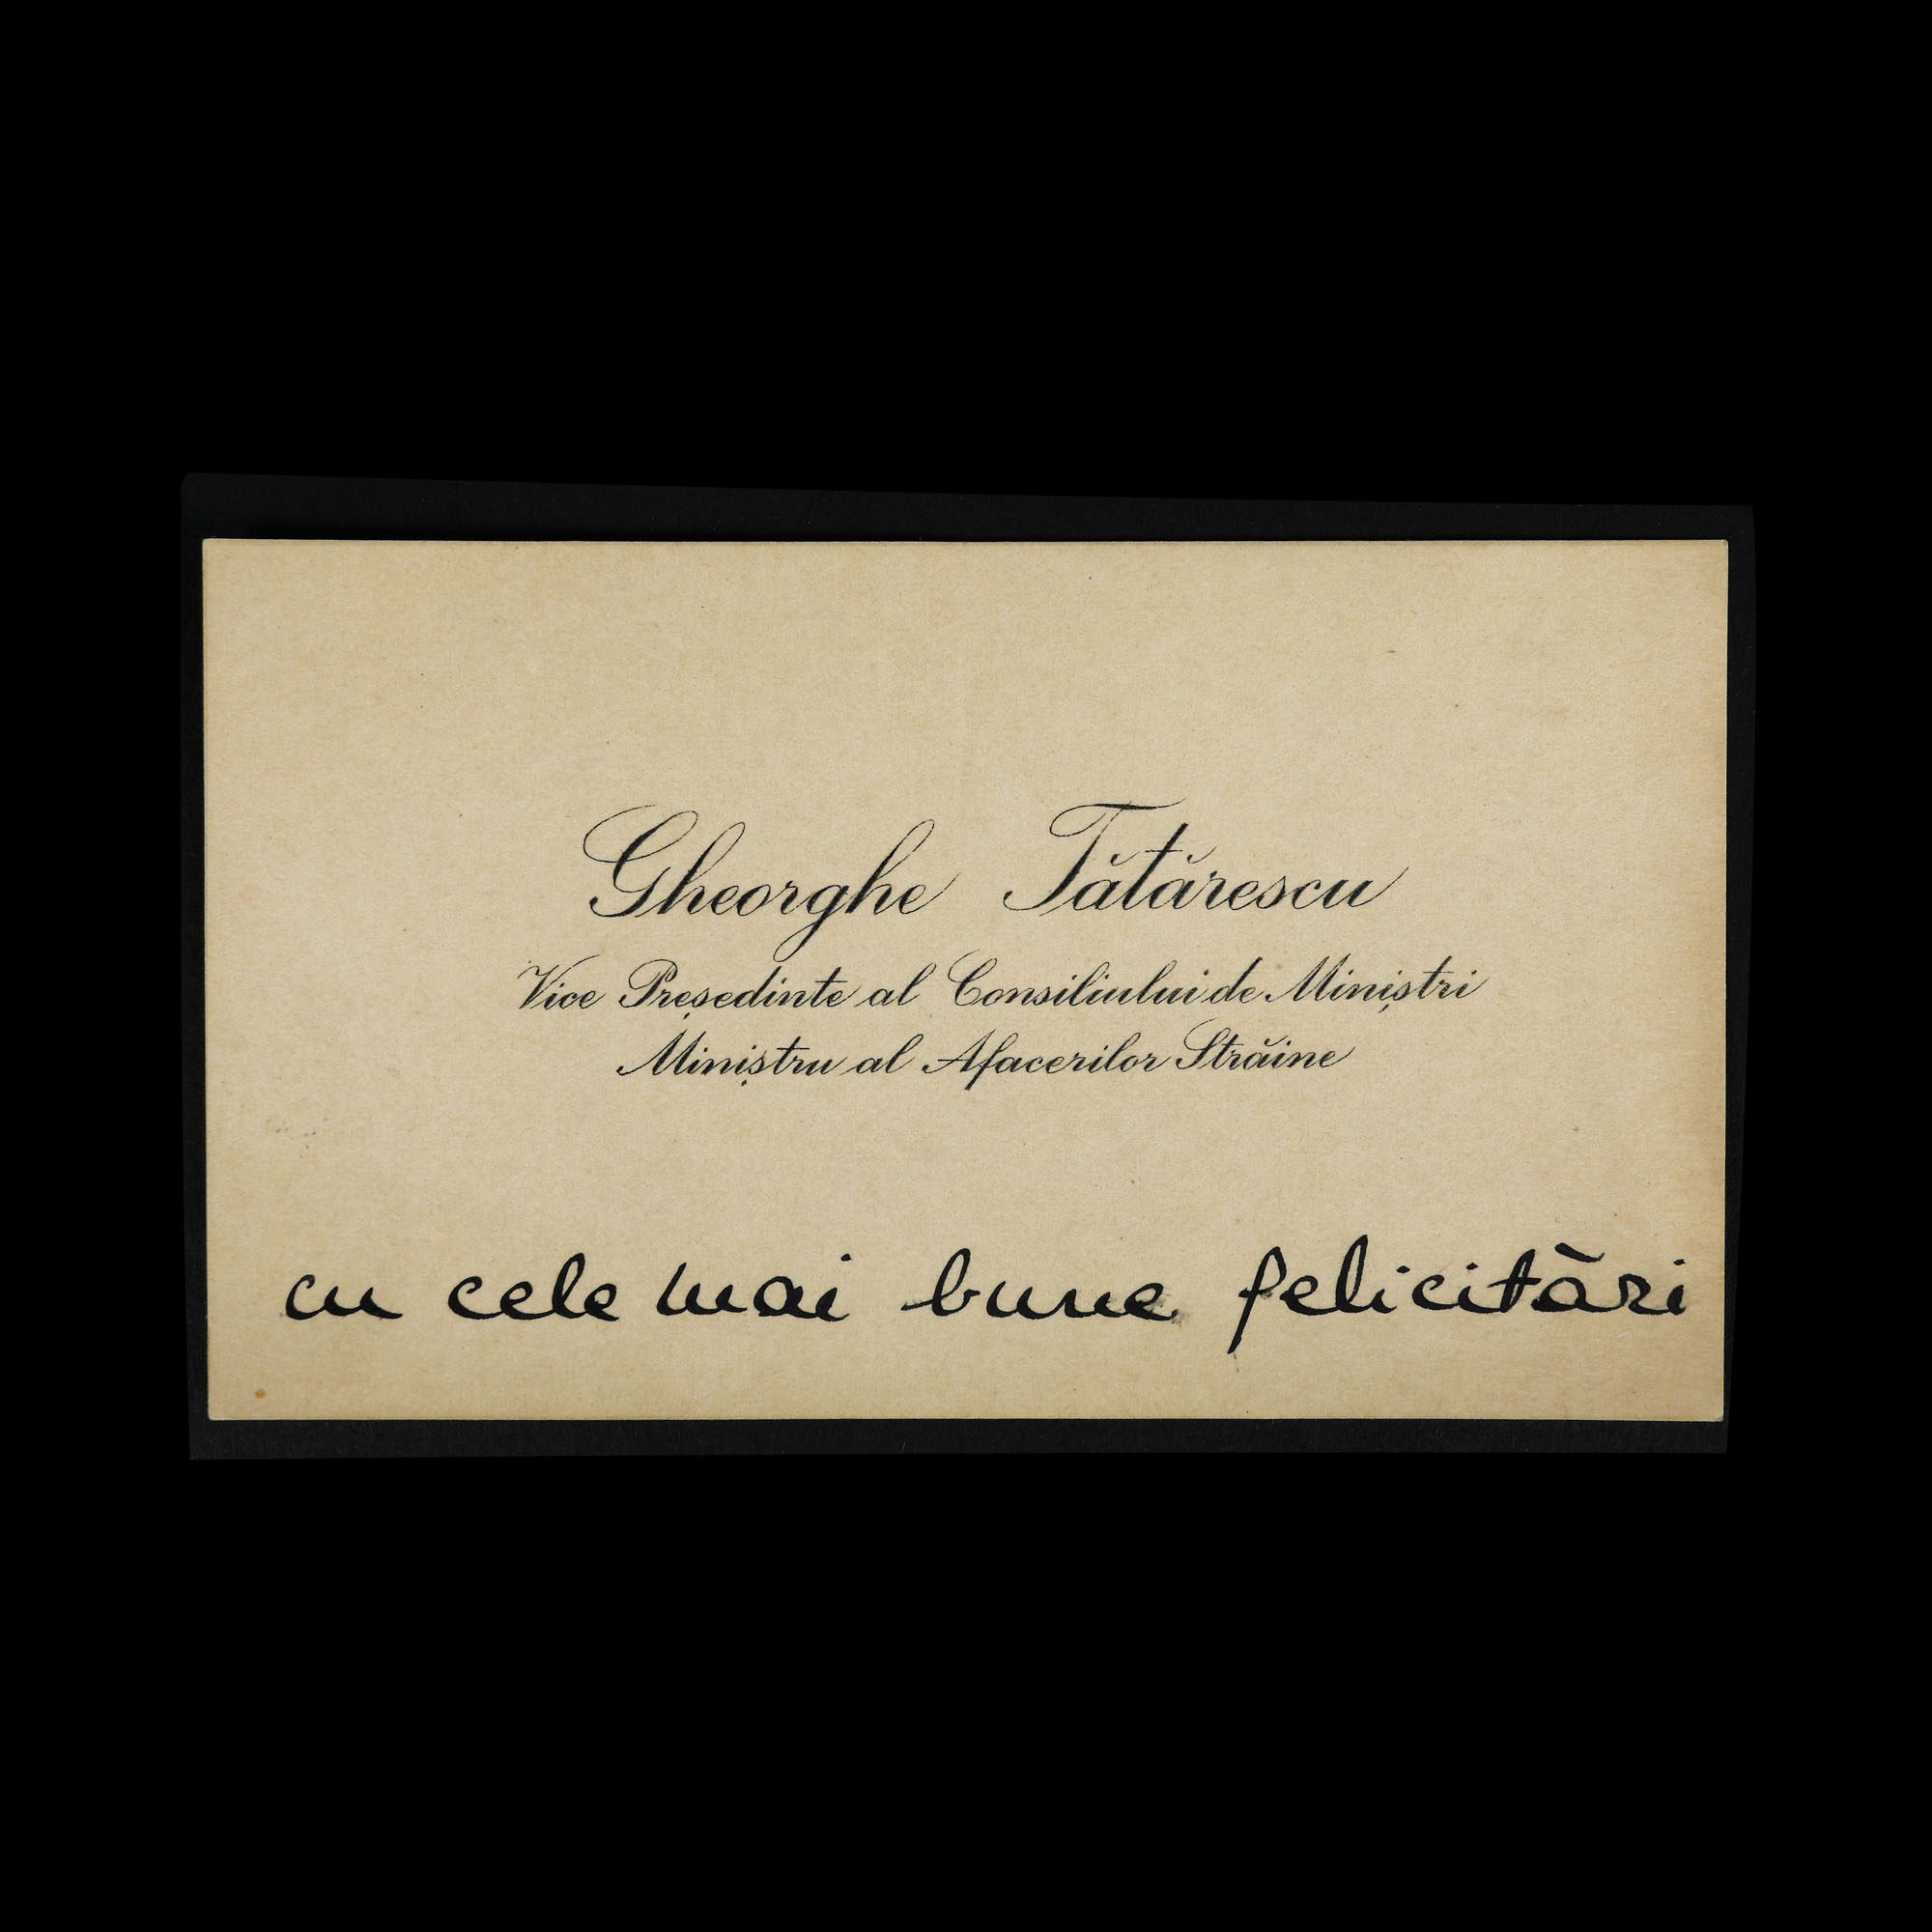 Gheorghe Tătărescu
Vice Președinte al Consiliului de Miniștri
Ministru al Afacerilor Străine
cu cele mai bune felicitări